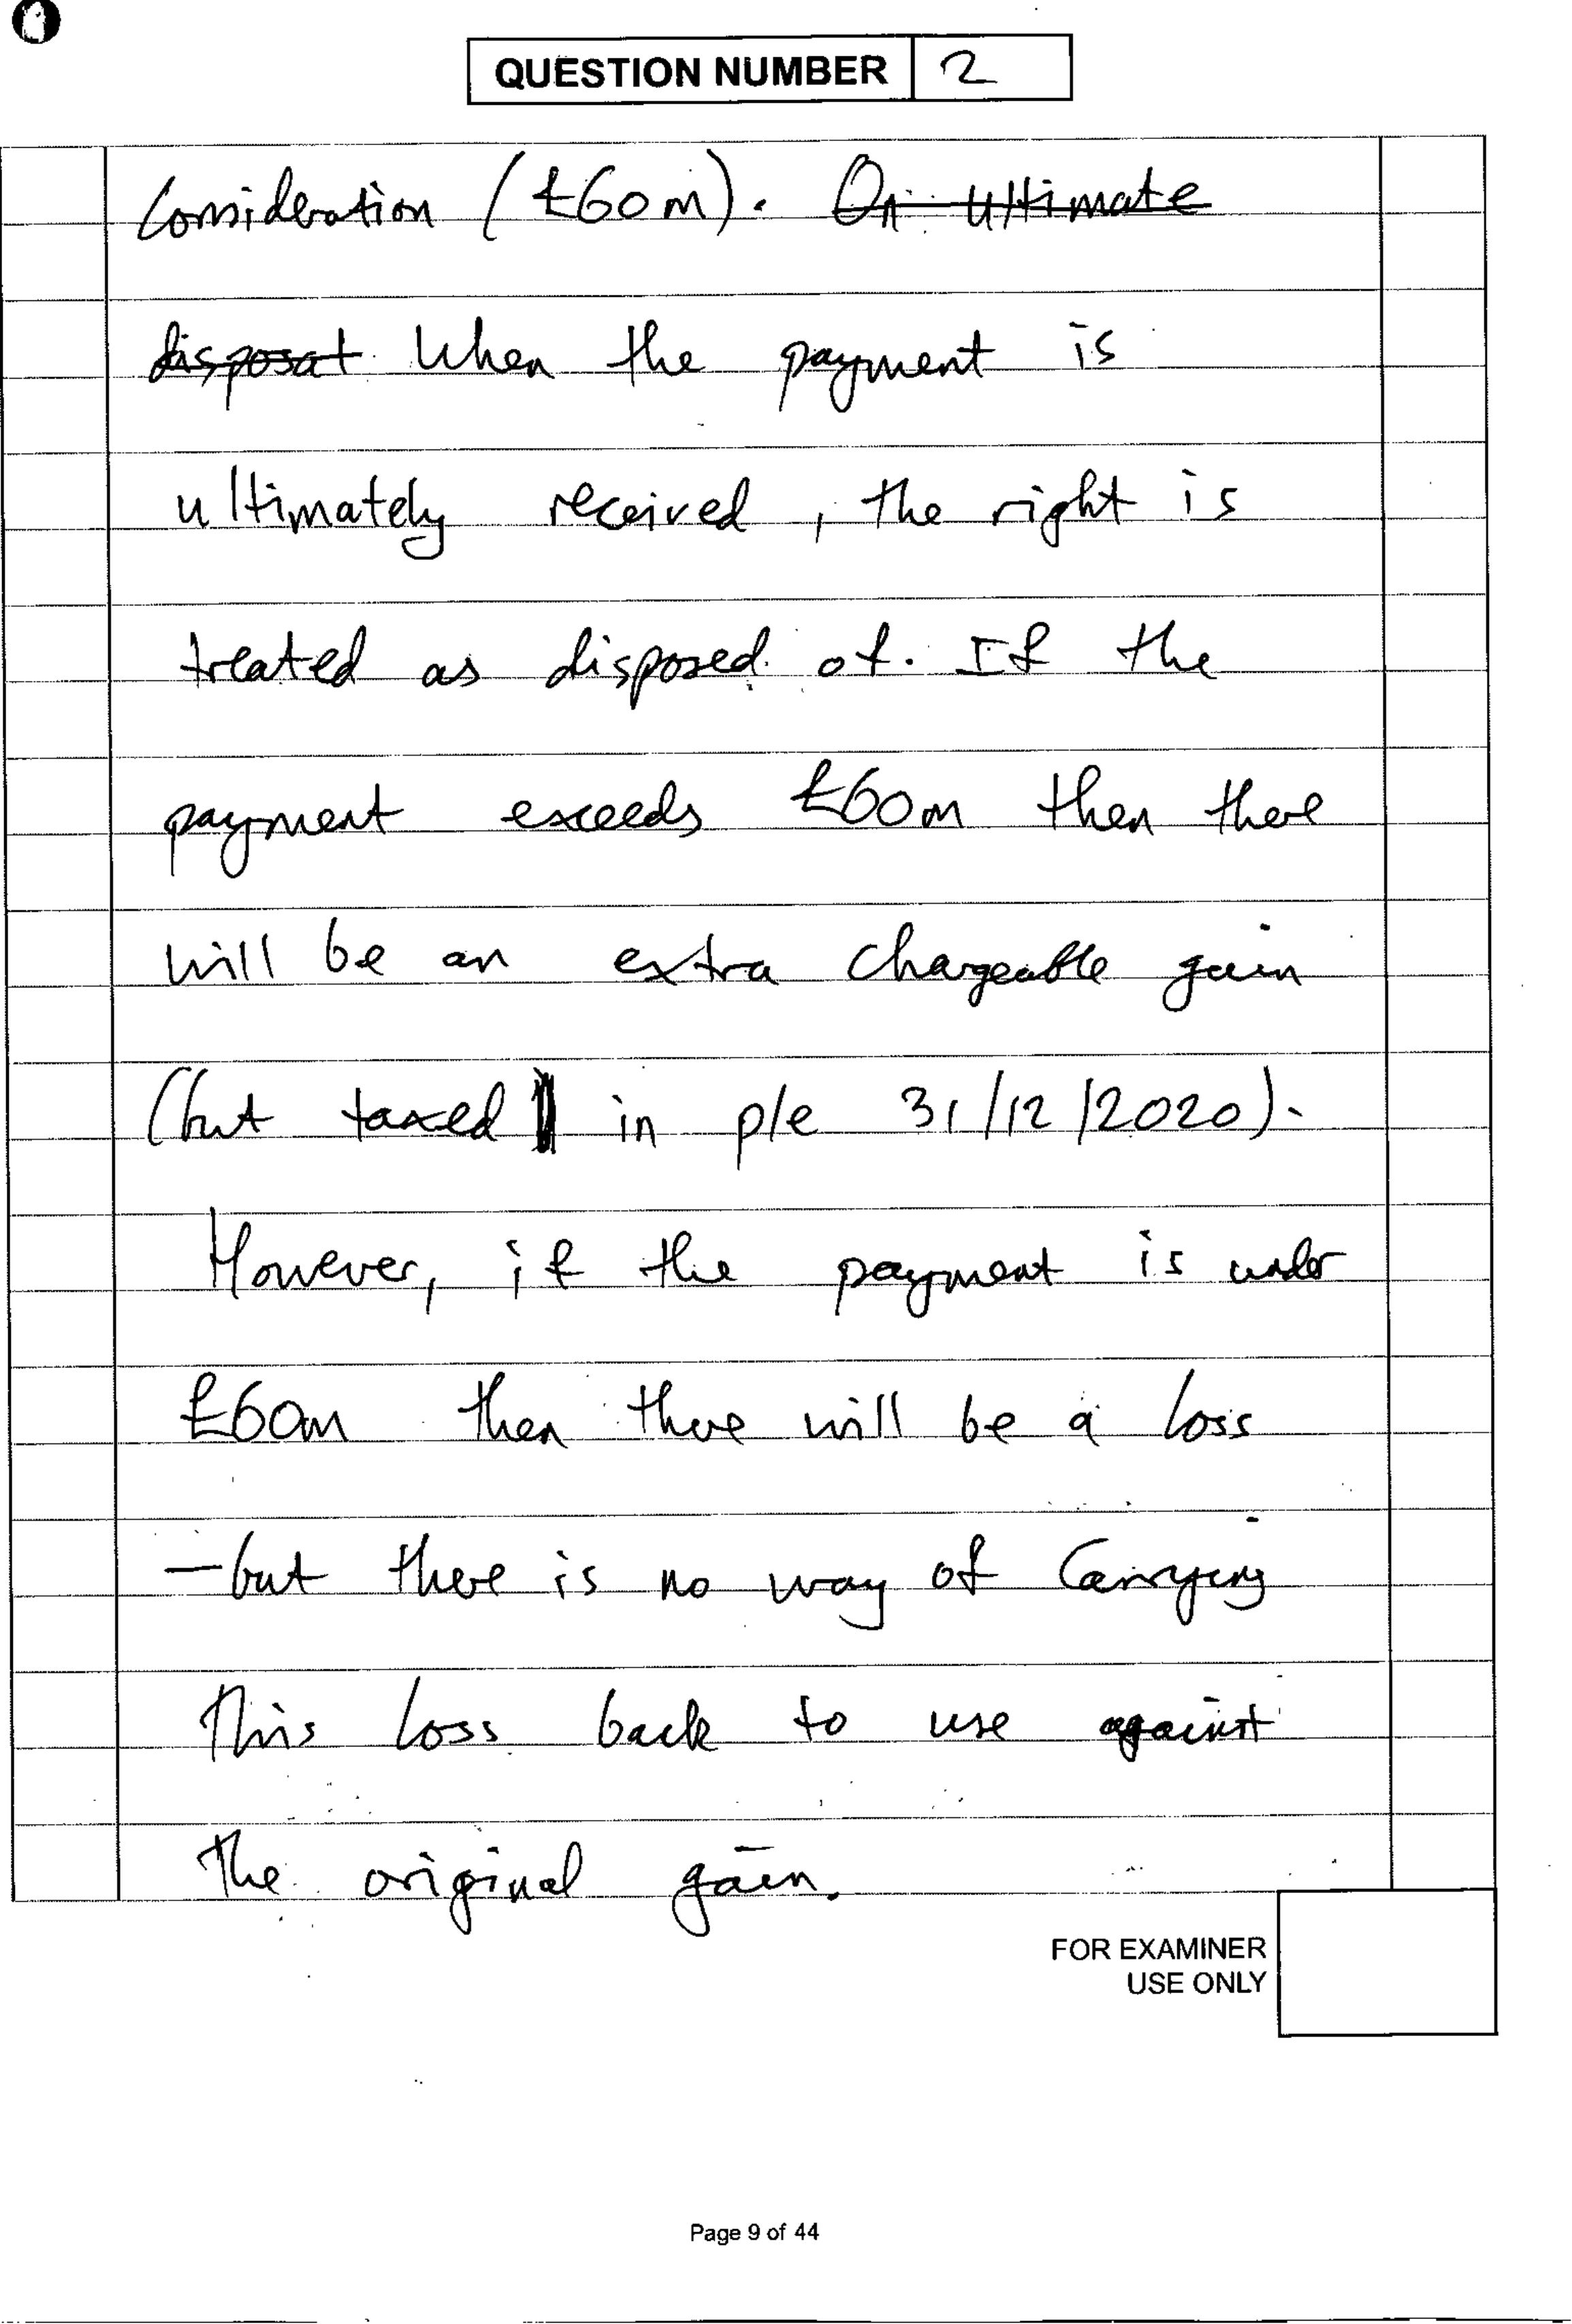 QUESTION NUMBER 2
Consideration (£60m). On ultimate
disposal When the payment is
ultimately received, the right is
treated as disposed of. If the
payment exceeds £60m then there
will be an extra chargeable gain
(but taxed in p/e 31/12/2020).
However, if the payment is under
£60m then there will be a loss
—but there is no way of Carrying
This loss back to use against
the original gain.
FOR EXAMINER
USE ONLY
Page 9 of 44